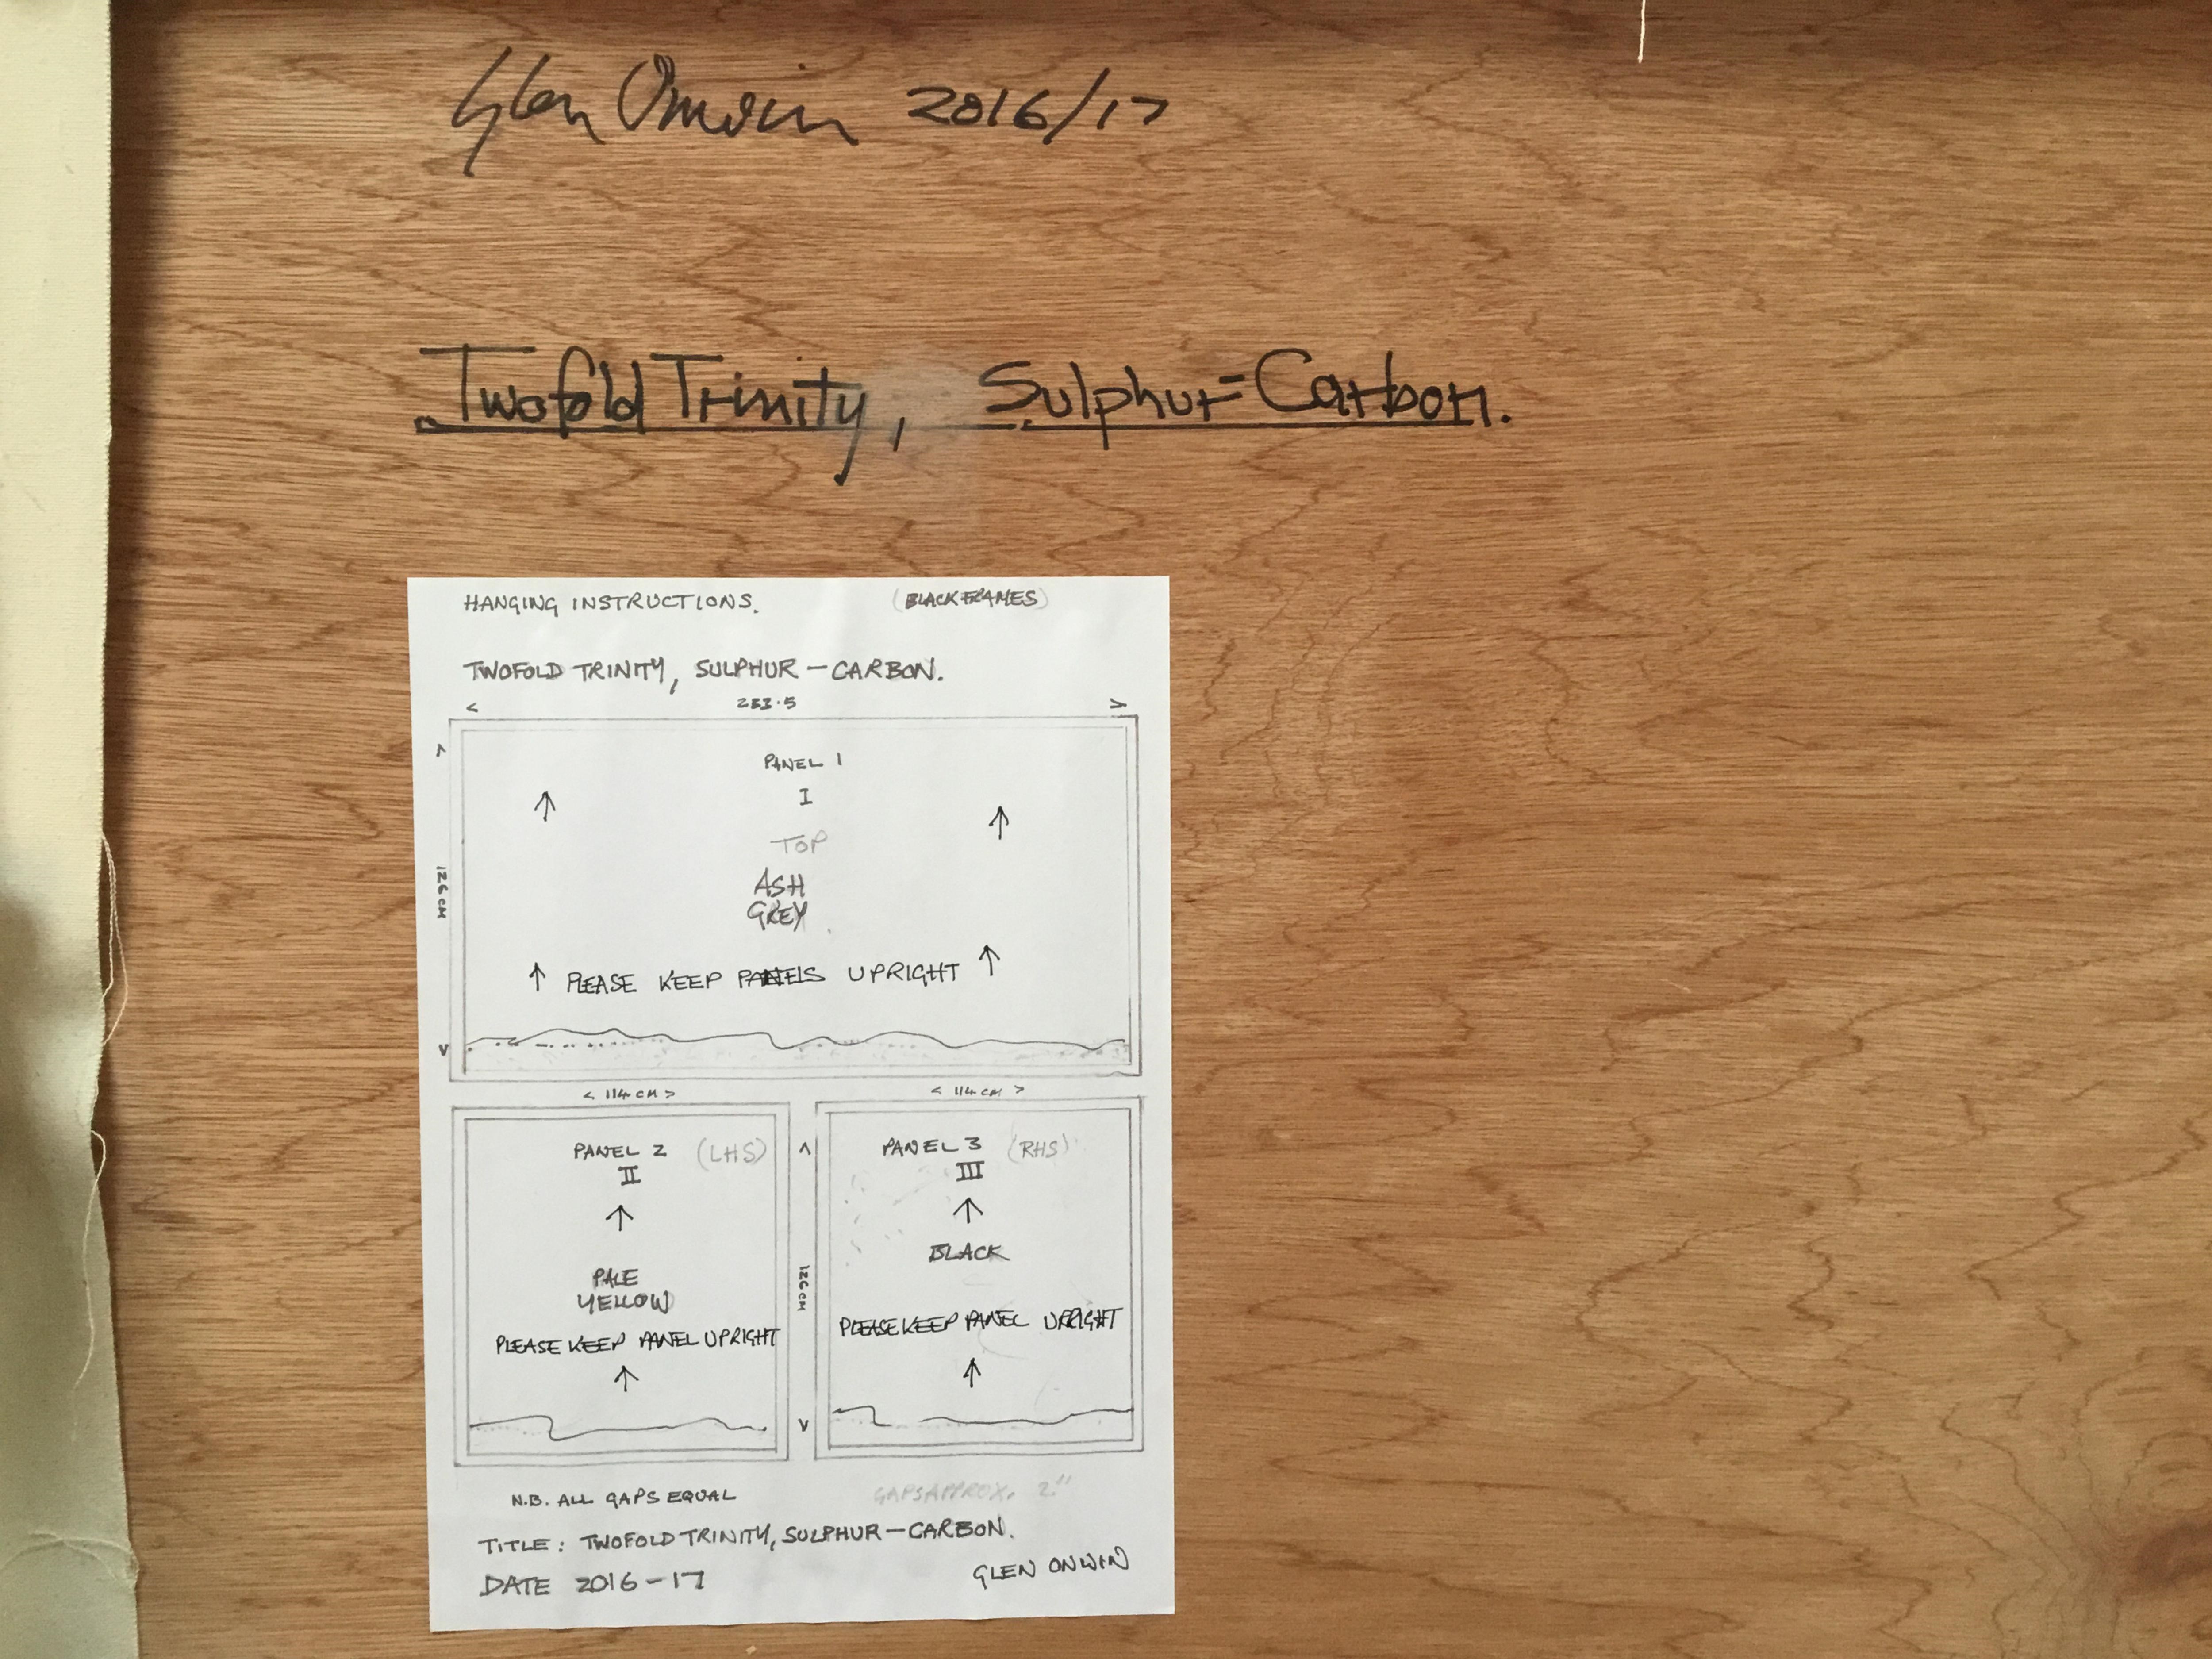 Glen Onwin 2016/17
Twofold Trinity, Sulphur=Carbon.
HANGING INSTRUCTIONS. (BLACK FRAMES)
TWOFOLD TRINITY, SULPHUR - CARBON.
< 233.5 >
PANEL 1
I
TOP
ASH
GREY
126 CM
PLEASE KEEP PANELS UPRIGHT
< 114 CM > < 114 CM >
PANEL 2 (LHS)
II
PALE
YELLOW
PLEASE KEEP PANEL UPRIGHT
126 CM
PANEL 3 (RHS)
III
BLACK
PLEASE KEEP PANEL UPRIGHT
N.B. ALL GAPS EQUAL GAPS APPROX. 2"
TITLE: TWOFOLD TRINITY, SULPHUR - CARBON.
DATE 2016-17 GLEN ONWIN